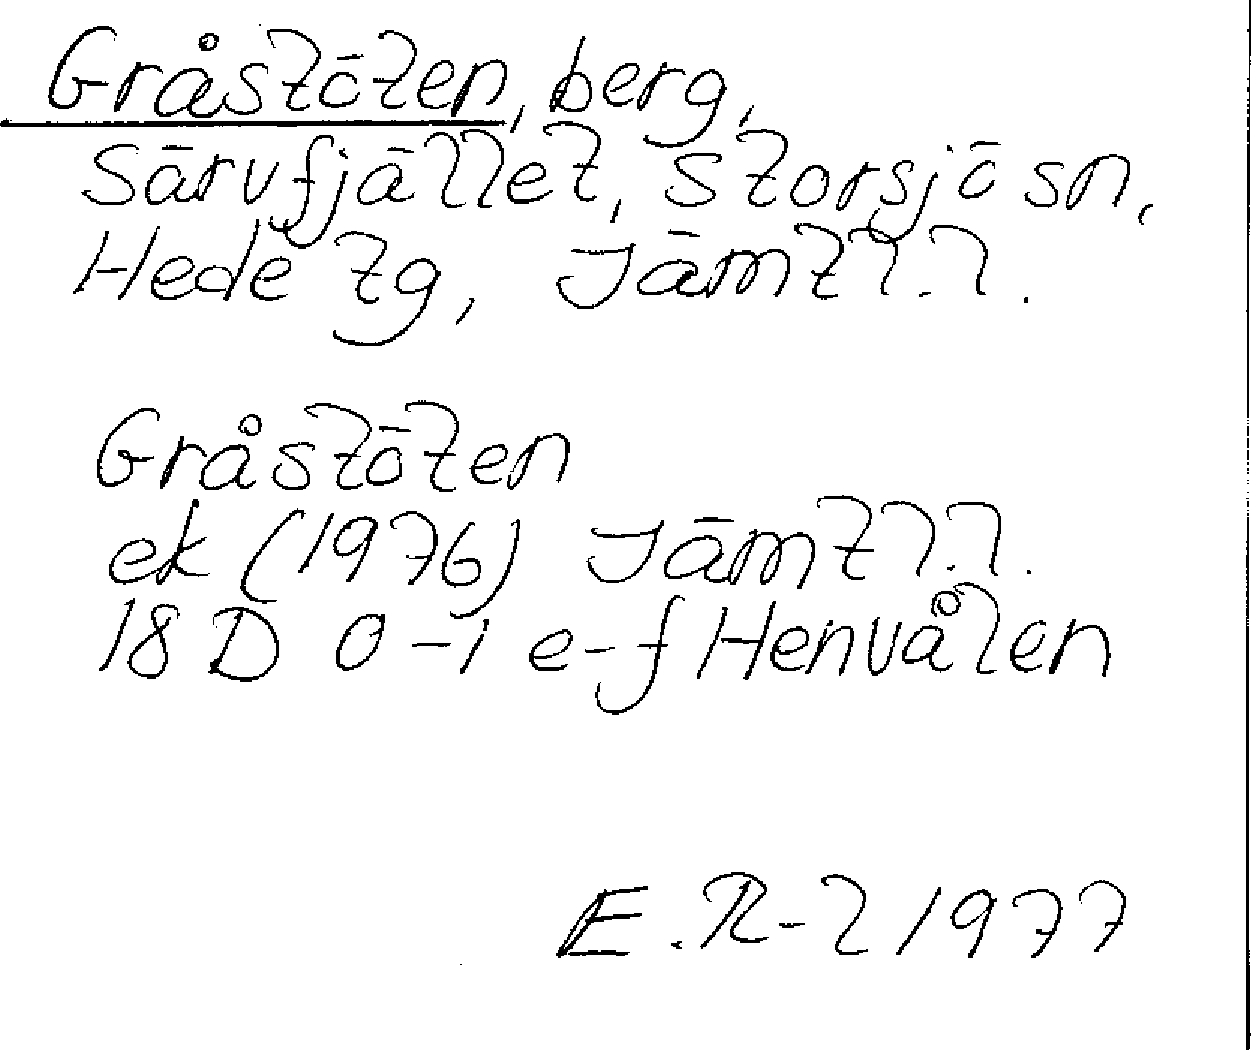 Gråstöten, berg,
Särvfjället, Storsjö sn,
Hede tg, Jämtl.l.
Gråstöten
ek (1976) Jämtl.l.
18 D 0-1 e-f Henvålen
E. R-l 1977